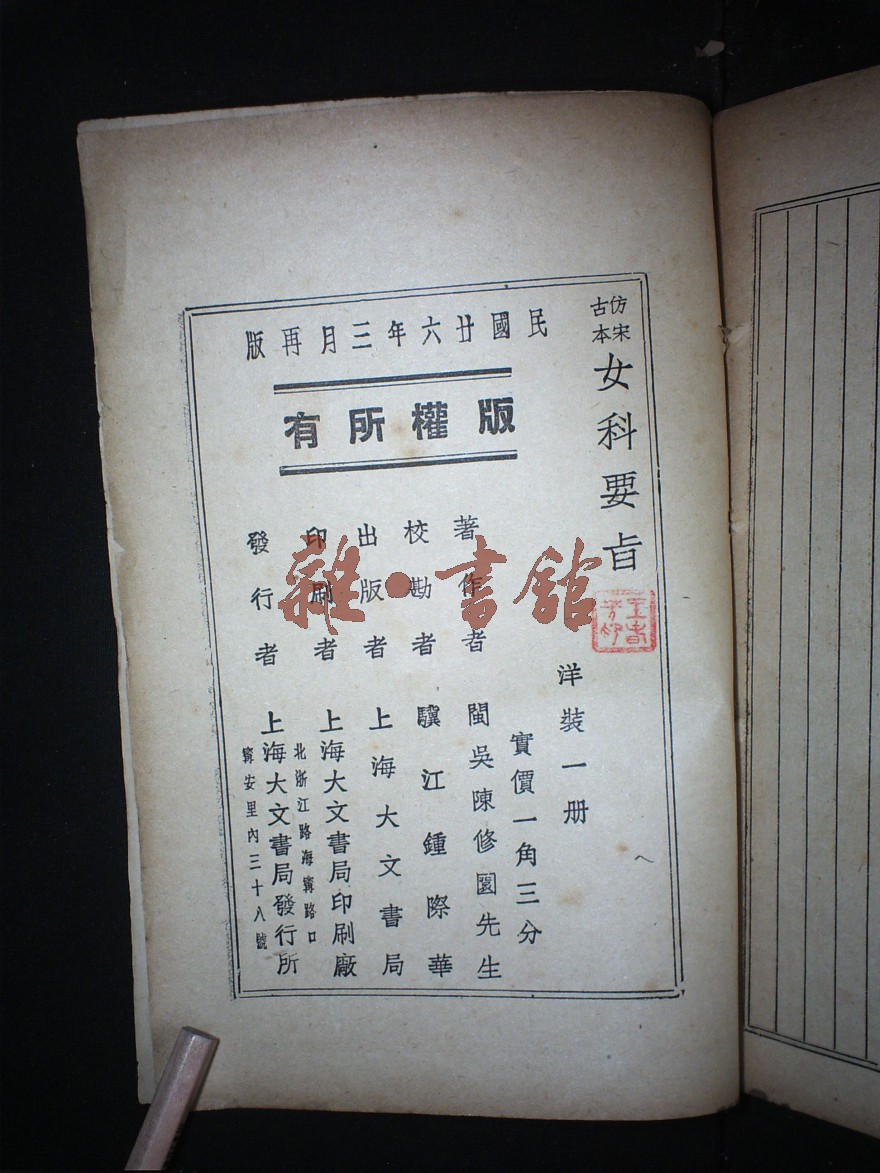 仿宋古本 女科要旨
洋裝一册
實價一角三分
民國廿六年三月再版
版權所有
著作者 閩吳陳修園先生
校勘者 驥江鍾際華
出版者 上海大文書局
印刷者 上海大文書局印刷廠
發行者 上海大文書局發行所
北浙江路海寗路口
寗安里內三十八號
雜·書館